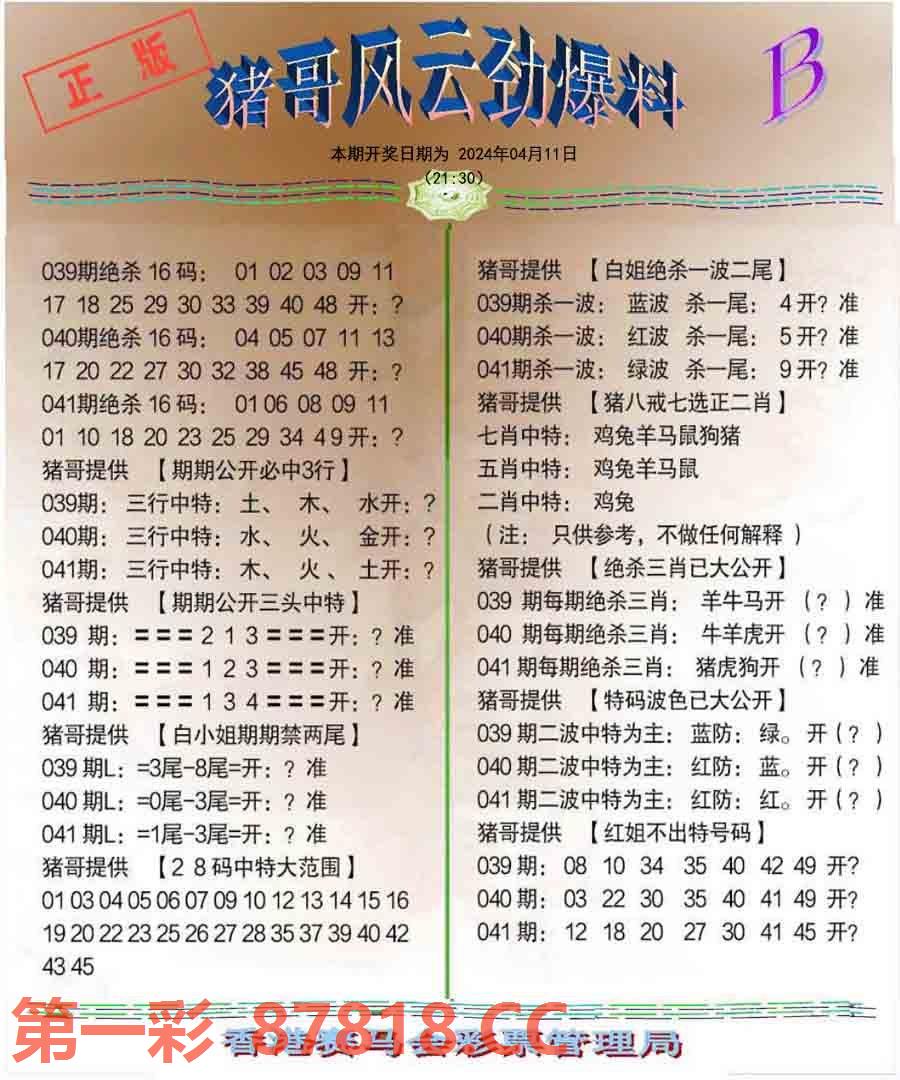 正版
猪哥风云劲爆料
B
本期开奖日期为 2024年04月11日
(21:30)
039期绝杀16码： 01 02 03 09 11
17 18 25 29 30 33 39 40 48 开：?
040期绝杀16码： 04 05 07 11 13
17 20 22 27 30 32 38 45 48 开：?
041期绝杀16码： 01 06 08 09 11
01 10 18 20 23 25 29 34 49开：?
猪哥提供 【期期公开必中3行】
039期：三行中特：土、 木、 水开：?
040期：三行中特：水、 火、 金开：?
041期：三行中特：木、 火、 土开：?
猪哥提供 【期期公开三头中特】
039 期：〓〓〓2 1 3〓〓〓开：? 准
040 期：〓〓〓1 2 3〓〓〓开：? 准
041 期：〓〓〓1 3 4〓〓〓开：? 准
猪哥提供 【白小姐期期禁两尾】
039期L：=3尾-8尾=开：? 准
040期L：=0尾-3尾=开：? 准
041期L：=1尾-3尾=开：? 准
猪哥提供 【28码中特大范围】
01 03 04 05 06 07 09 10 12 13 14 15 16
19 20 22 23 25 26 27 28 35 37 39 40 42
43 45
猪哥提供 【白姐绝杀一波二尾】
039期杀一波： 蓝波 杀一尾： 4开? 准
040期杀一波： 红波 杀一尾： 5开? 准
041期杀一波： 绿波 杀一尾： 9开? 准
猪哥提供 【猪八戒七选正二肖】
七肖中特： 鸡兔羊马鼠狗猪
五肖中特： 鸡兔羊马鼠
二肖中特： 鸡兔
（注： 只供参考，不做任何解释）
猪哥提供 【绝杀三肖已大公开】
039 期每期绝杀三肖： 羊牛马开 （?）准
040 期每期绝杀三肖： 牛羊虎开 （?）准
041期每期绝杀三肖： 猪虎狗开 （?）准
猪哥提供 【特码波色已大公开】
039期二波中特为主： 蓝防： 绿。开(?)
040期二波中特为主： 红防： 蓝。开(?)
041期二波中特为主： 红防： 红。开(?)
猪哥提供 【红姐不出特号码】
039期： 08 10 34 35 40 42 49 开?
040期： 03 22 30 35 40 41 49 开?
041期： 12 18 20 27 30 41 45 开?
第一彩 87818.CC
香港赛马会彩票管理局